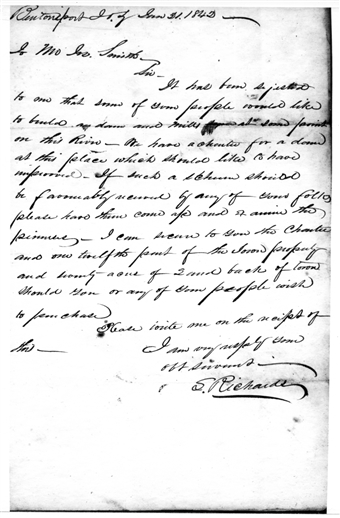 Bentonsport I. T. Jan 31. 1842
To Mr Jos. Smith
Sir
It has been sujested
to me that some of your people would like
to build a dam and mills at some point
on this River – We have a charter for a dam
at this place which should like to have
improved – If such a scheme should
be favourably received by any of your folks
please have them come up and examine the
– I can secure to you the Charter
and one twelfth part of the Town property
and seventy acres of Land back of town
should you or any of your people wish
to purchase
Please write me on the reicipt of
this –
I am very respfy your
obt servant –
S. Richards